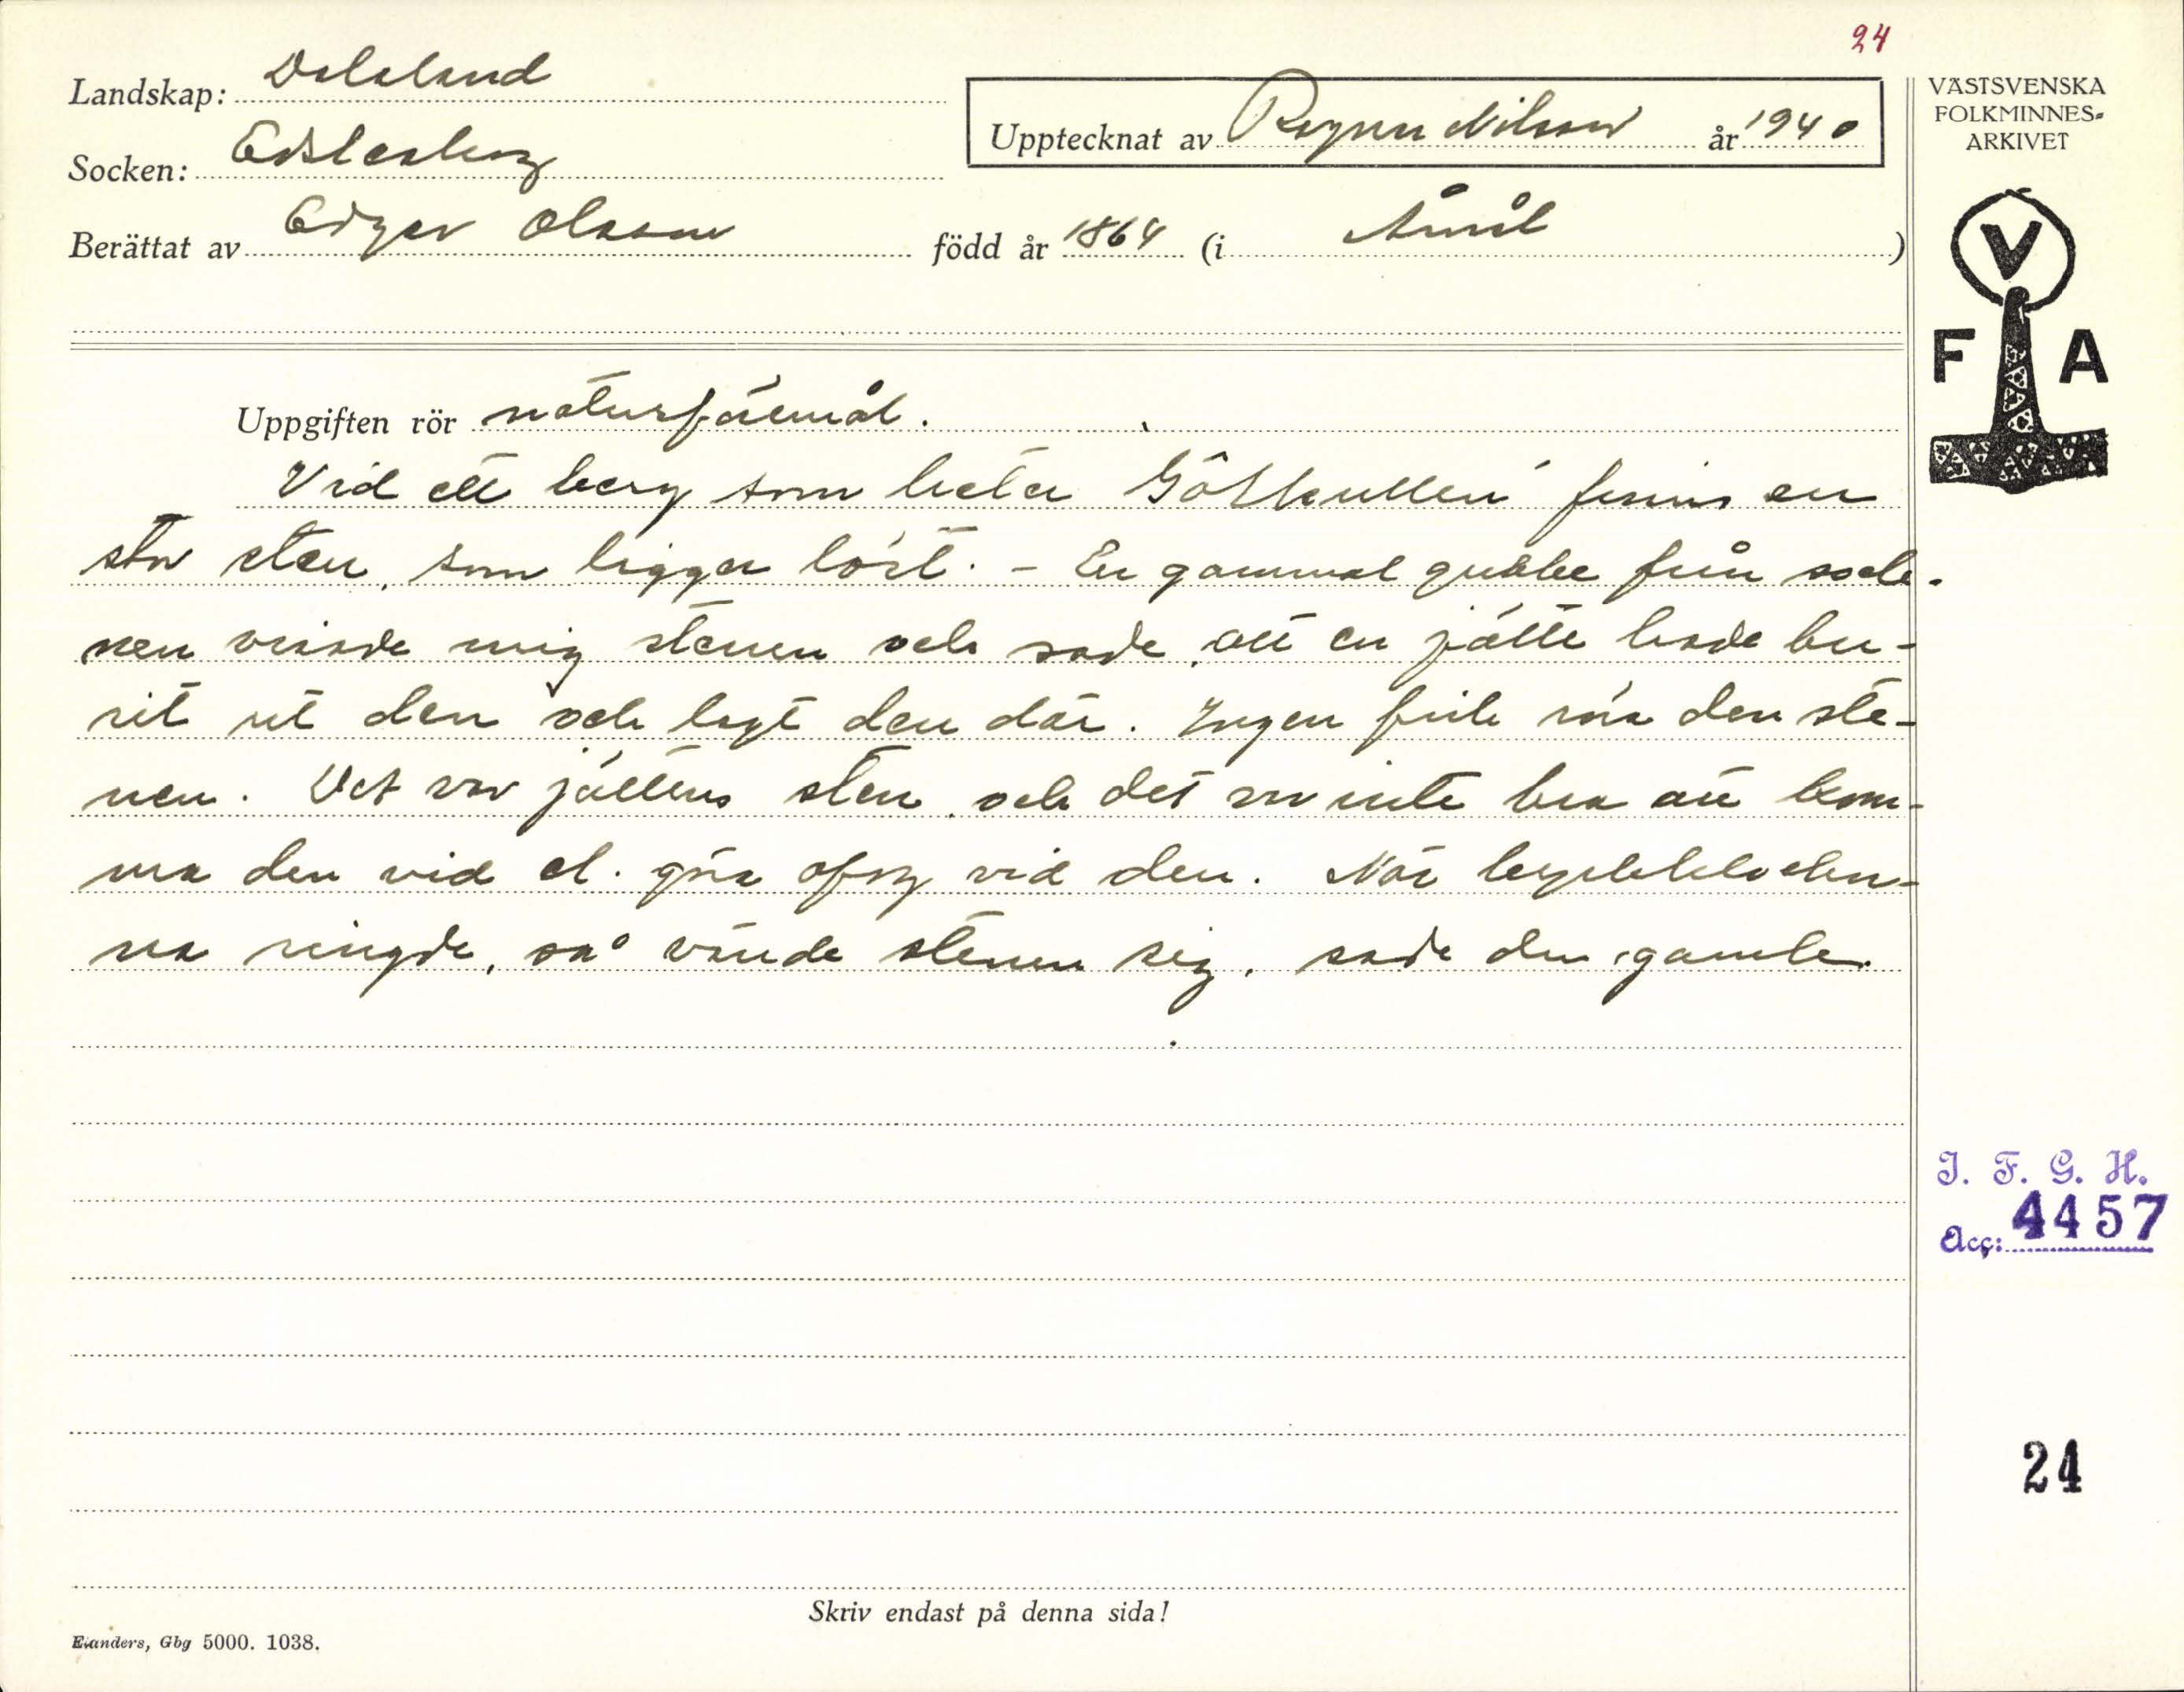 24
Landskap: Dalsland
Socken: Edsleskog
Berättat av Edgar Olsson född år 1864 (i Åmål)
Upptecknat av Ragnar Nilsson år 1940
VÄSTSVENSKA
FOLKMINNES-
ARKIVET
V
F A
Uppgiften rör naturföremål.
Vid ett berg som heter finns en
stor sten, som ligger löst. - En gammal gubbe från sock-
nen visade mig stenen och sade, att en jätte hade bu-
rit ut den och lagt den där. Ingen fick röra den ste-
nen. Det var jättens sten och det var inte bra att kom-
ma den vid el. göra ofog vid den. När kyrkklockor-
na ringde, så vände stenen sig, sade den gamle.
I. F. G. H.
Acc: 4457
24
Skriv endast på denna sida!
Elanders, Gbg 5000. 1038.